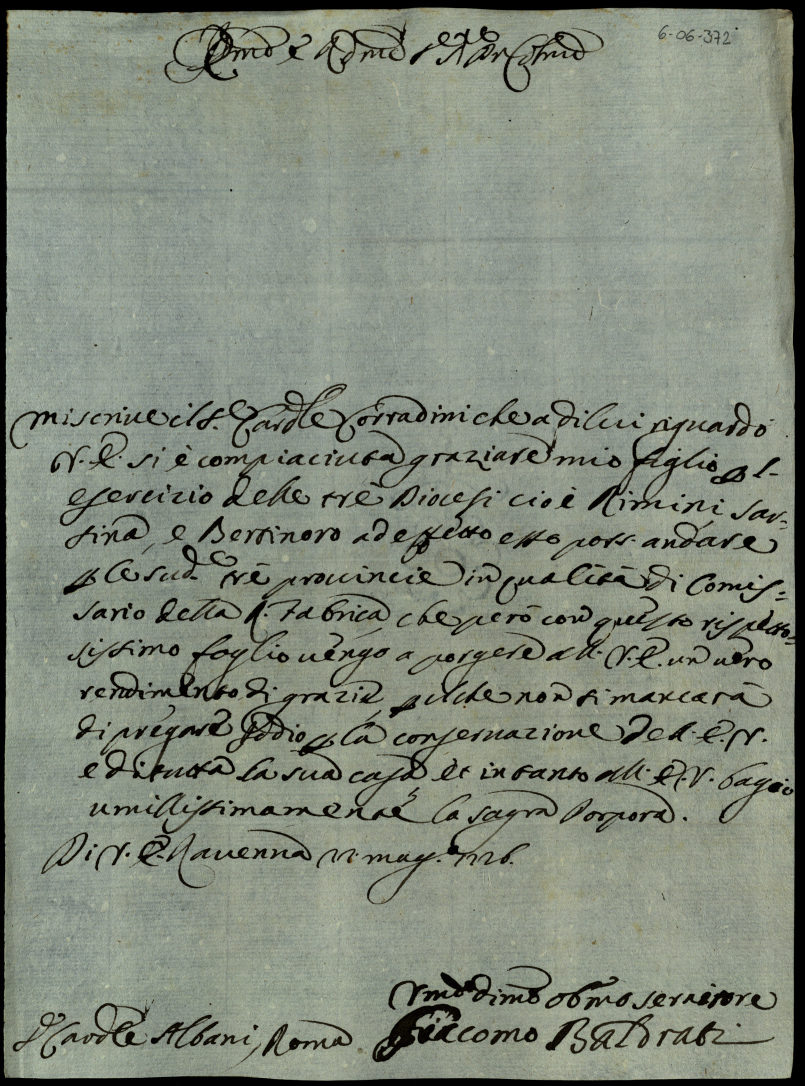 6-06-372
Emo e Rdmo Sr Sr Pne Colmo
Mi scrive il Sr Cardle Corradini che a di lui riguardo
V. E. si è compiaciuta graziare mio figlio p l-
esercizio delle trè Diocesi cioè Rimini Sar-
sina, e Bertinoro ad effetto esso poss. andare
p le sude trè provincie in qualità di Comis-
sario della R. Fabrica, che però con questo rispetto-
sissimo foglio vengo a porgere all. V. E. un vero
rendimento di grazie, p il che non si mancarà
di pregare Iddio p la conservazione dell. E. V.
e di tutta la sua casa et intanto all. E. V. bagio
umilissimamente la sagra Porpora.
Di V. E. Ravenna 22 mag. 1726.
Vmo dimo obmo servitore
Sr Cardle Albani, Roma Giacomo Baldrati